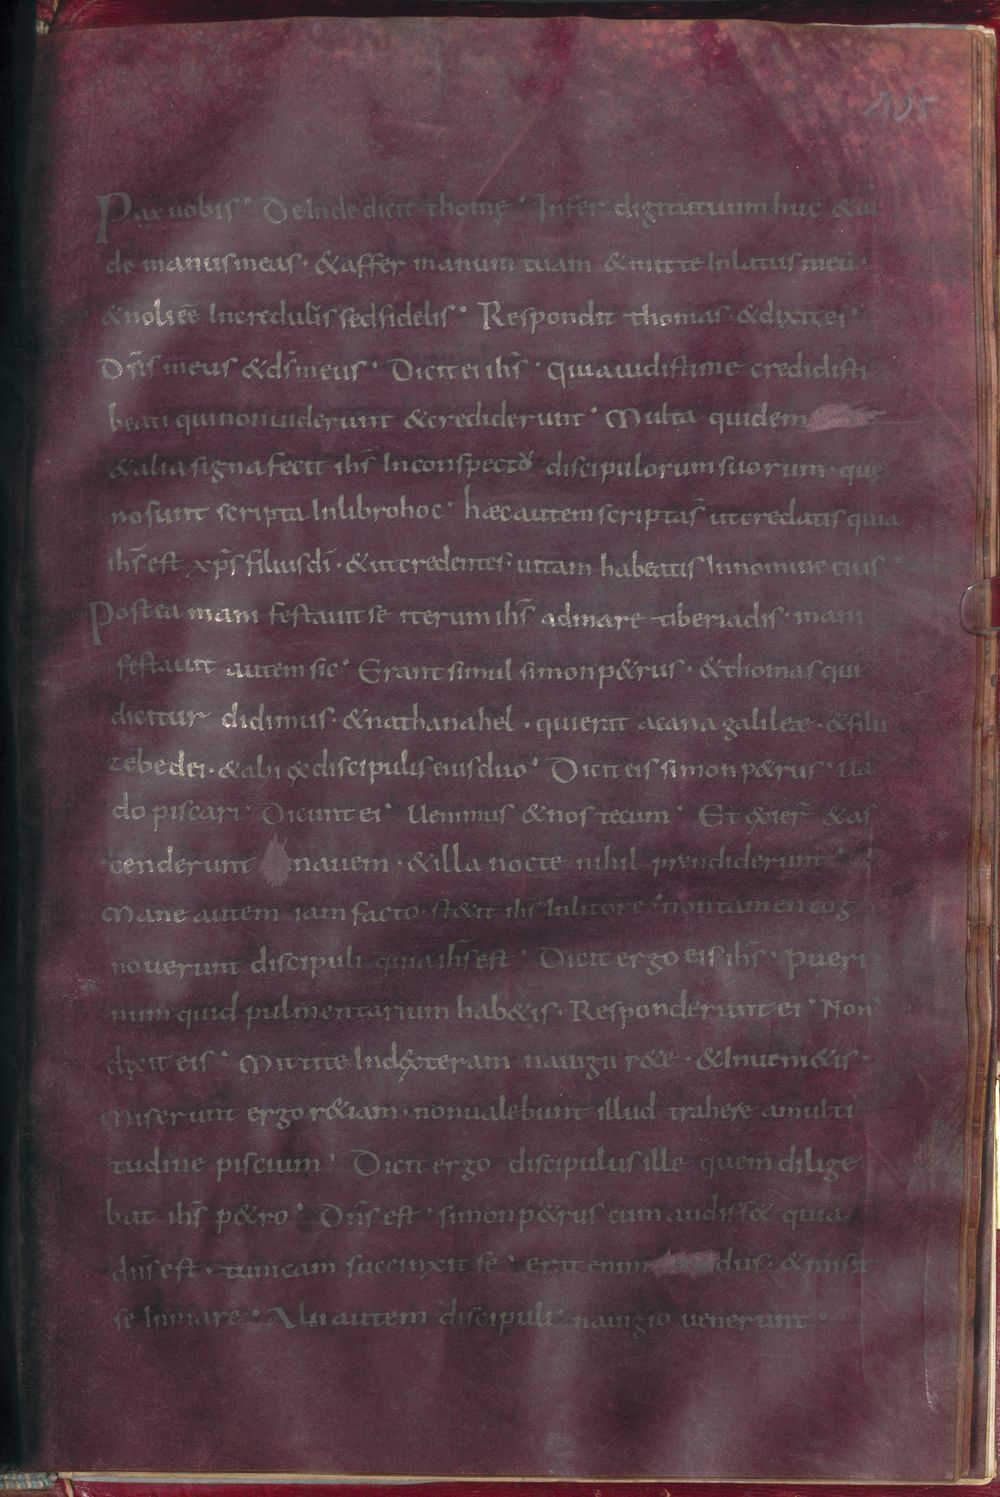 105
Pax uobis· Deinde dicit thomę· Infer digitu tuum huc &ui
de manus meas· & affer manum tuam & mitte In latus meū·
& noli eē Incredulis sed fidelis· Respondit thomas· & dixit ei·
Dn̄s meus & d̄s meus· Dicit ei ih̄s· quia uidisti me credidisti
beati qui non uiderunt & crediderunt· Multa quidem
& alia signa fecit ih̄s In conspectu discipulorum suorum· quę
no sunt scripta In libro hoc· haec autem scripta s̄ ut credatis quia
ih̄s est xp̄s filius d̄i· & ut credentes· uitam habeatis In nomine eius·
Postea manifestauit se iterum ih̄s ad mare tiberiadis· mani
festauit autem sic· Erant simul simon p&rus· & thomas qui
dicitur didimus· & nathanahel· qui erat a cana galileæ· & filii
zebedei· & alii ex discipulis eius duo· Dicit eis simon p&rus· Ua
do piscari· Dicunt ei· Uenimus & nos tecum· Et exier̄ & as
cenderunt nauem· & illa nocte nihil prendiderunt·
Mane autem iam facto· st&it ih̄s In litore· non tamen cog
nouerunt discipuli quia ih̄s est· Dicit ergo eis ih̄s· Pueri
numquid pulmentarium hab&is· Responderunt ei· Non·
dixit eis· Mittite In dexteram nauigii r&e· & Inueni&is·
Miserunt ergo r&iam· non ualebunt illud trahere a multi
tudine piscium· Dicit ergo discipulus ille quem dilige
bat ih̄s p&ro· Dn̄s est· simon p&rus cum audiss& quia
dn̄s est· tunicam succinxit se· erat enim dus· & misit
se In mare· Alii autem discipuli nauigio uenerunt·